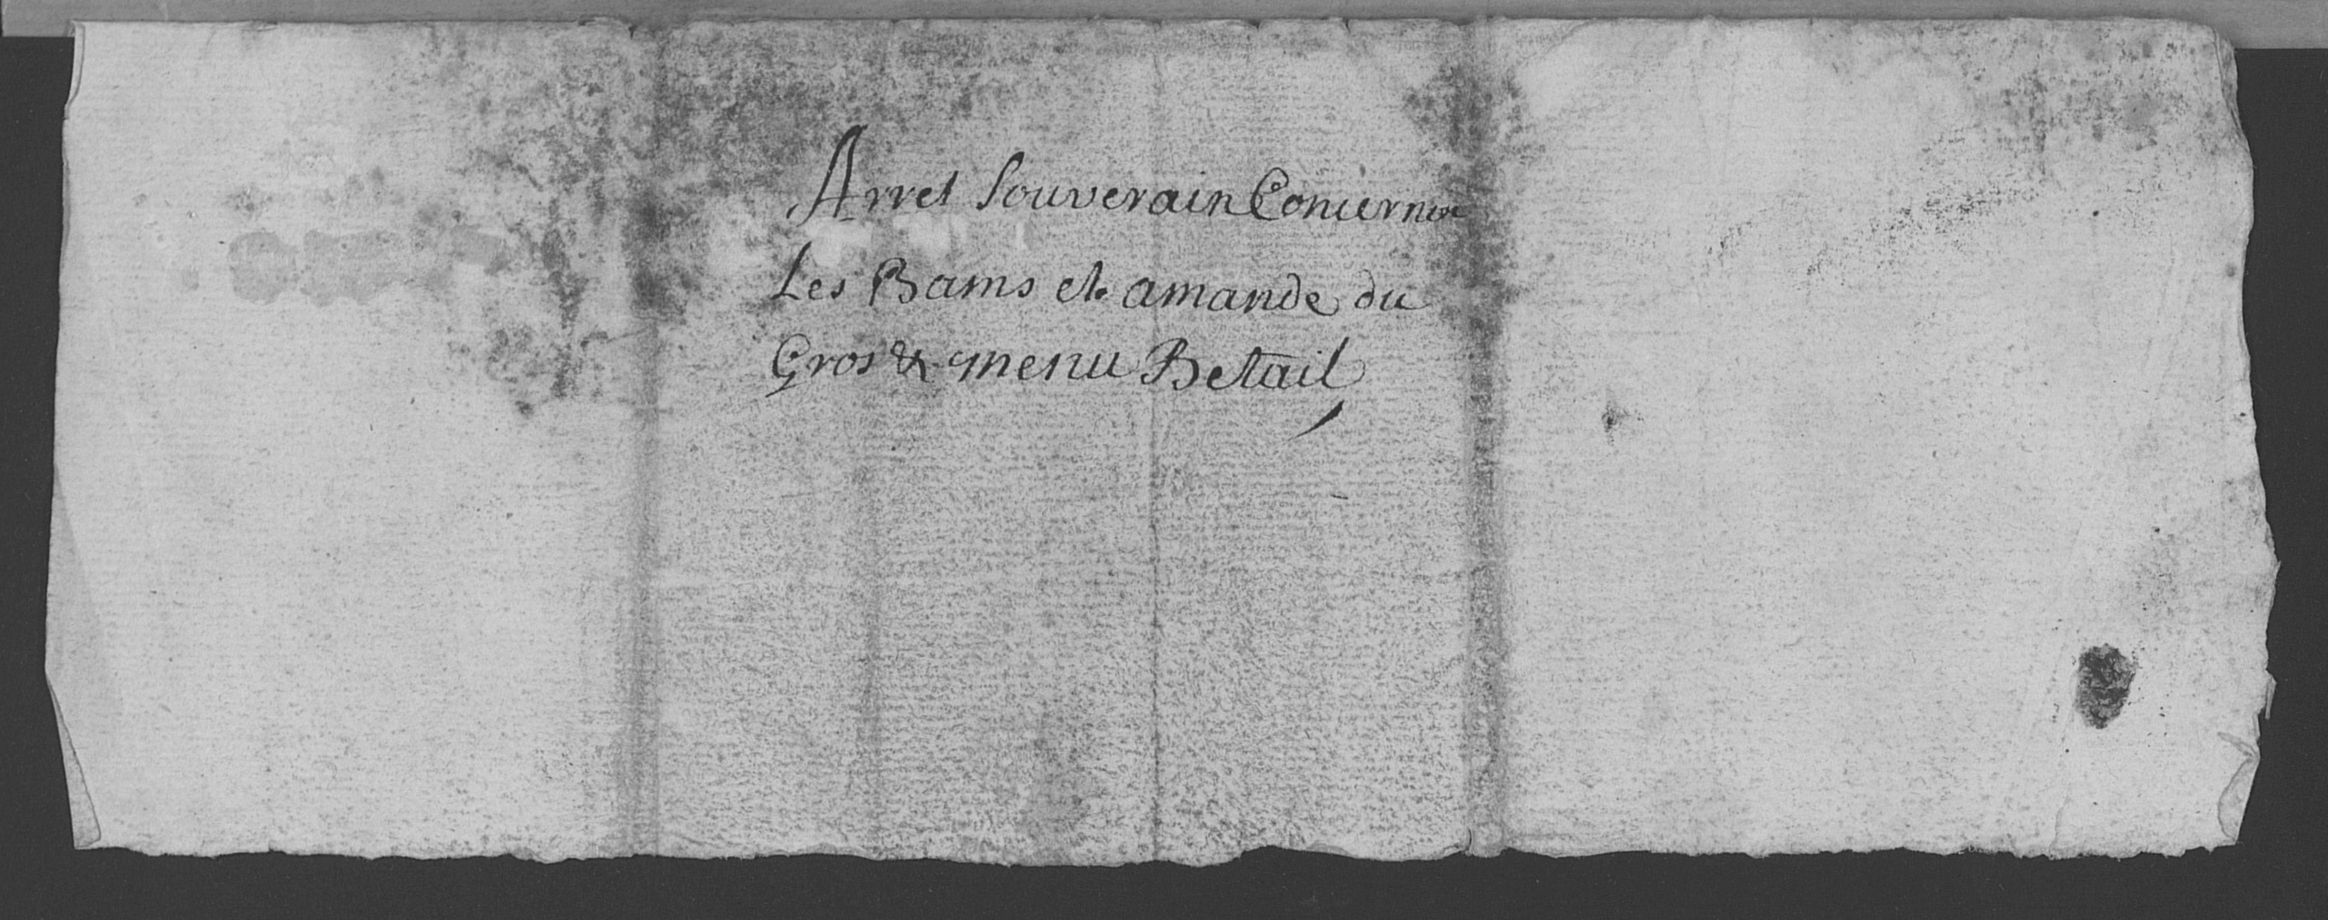 Arret Souverain Concernen
Les Bams et amande du
Gros & menu Betail